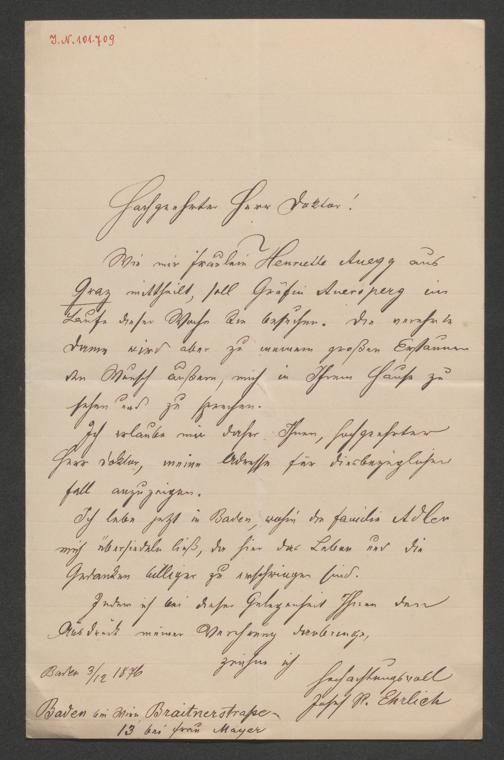 J.N. 101.709
Hochgeehrter Herr Doktor!
Wie mir Fräulein Henriette Auegg aus
Graz mittheilt, soll Gräfin Auersperg im
Laufe dieser Woche Sie besuchen. Die verehrte
Dame wird aber zu meinem großen Erstaunen
den Wunsch äußern, mich in Ihrem Hause zu
sehen und zu sprechen.
Ich erlaube mir daher Ihnen, hochgeehrter
Herr Doktor, meine Adresse für diesbezüglichen
Fall anzuzeigen.
Ich lebe jetzt in Baden, wohin die Familie Adler
mich übersiedeln ließ, da hier das Leben und die
Gedanken billiger zu erschwingen sind.
Indem ich bei dieser Gelegenheit Ihnen den
Ausdruck meiner Verehrung darbringe,
zeichne ich
hochachtungsvoll
Josef R. Ehrlich
Baden 3/12 1876
Baden bei Wien Braitnerstraße
13 bei Frau Mayer